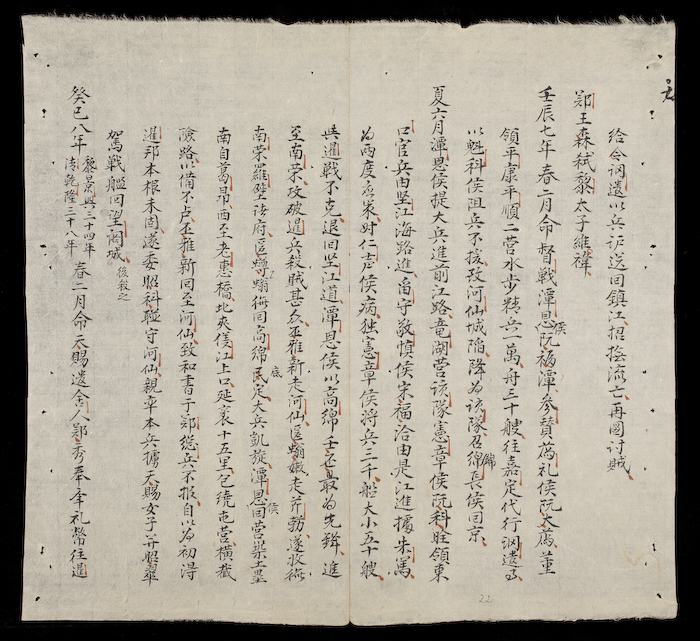 給令调遣以兵护送回鎮江招撫流亡再圖讨賊
郑王森弑黎太子維禕
壬辰七年春二月命督戰潭恩侯阮福潭參贊蔿礼侯阮大蔿董
領平康平順二營水步精兵一萬舟三十艘往嘉定代行调遣事
以魁科侯阻兵不援致河仙城陷降為該隊召錦綿長侯回京
夏六月潭恩侯提大兵進前江路竜湖营該隊憲章侯阮科旺領東
口官兵由堅江海路進畄守敬慎侯宋福洽由是江進擄朱篤
為両度應對仁声侯病独憲章侯將兵三千船大小五十艘
與暹戰不克退回堅江道潭恩侯以高綿壬丕最為先鋒進
至南荣攻破暹兵殺賊甚众丕雅新走河仙匿螉嫩走芹渤遂收復
南荣羅壁諸府匿螉回高綿民定大兵凱旋潭恩侯回营築土壘
南自葛昂西至老惠橋北夾僊江上口延袤十五里包繞屯营橫截
險路以備不卢丕雅新回至河仙致和書于郑總兵不报自以為初得
暹邦本根未固遂委昭科聯守河仙親率本兵擄天賜女子并昭翠
駕戰艦回望閣城後殺之
癸巳八年黎景興三十四年清乾隆三十八年春二月命天賜遣舍人郑秀奉季礼幣往暹